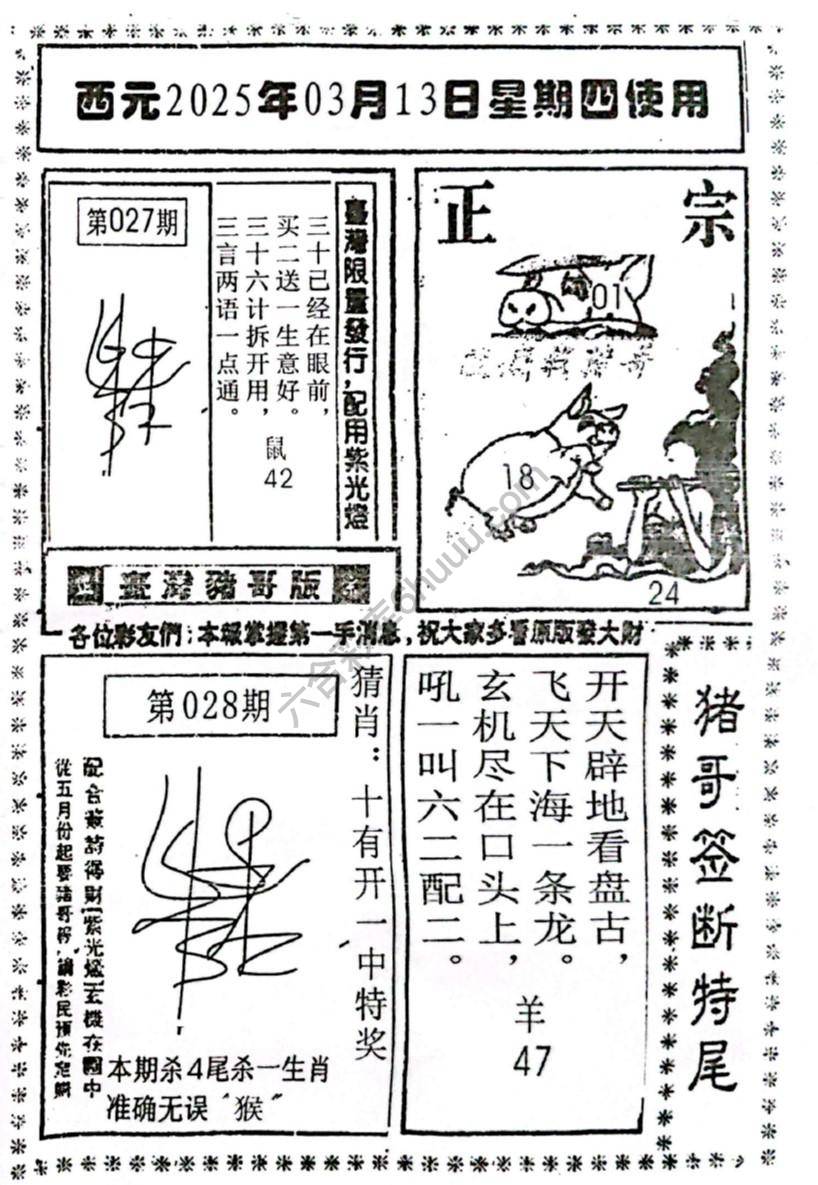 西元2025年03月13日星期四使用
第027期
三十已经在眼前，
买二送一生意好。
三十六计拆开用，
三言两语一点通。
鼠
42
臺灣限量發行，配用紫光燈
正宗
01
18
24
臺灣豬哥版
各位彩友們：本報掌握第一手消息，祝大家多看原版發大財
第028期
猜肖：十有开一中特奖
從五月份起要豬哥報，請彩民預先定購
本期杀4尾杀一生肖
准确无误“猴”
开天辟地看盘古，
飞天下海一条龙。
玄机尽在口头上，
吼一叫六二配二。
羊
47
猪哥签断特尾
六合彩库6huuu.com